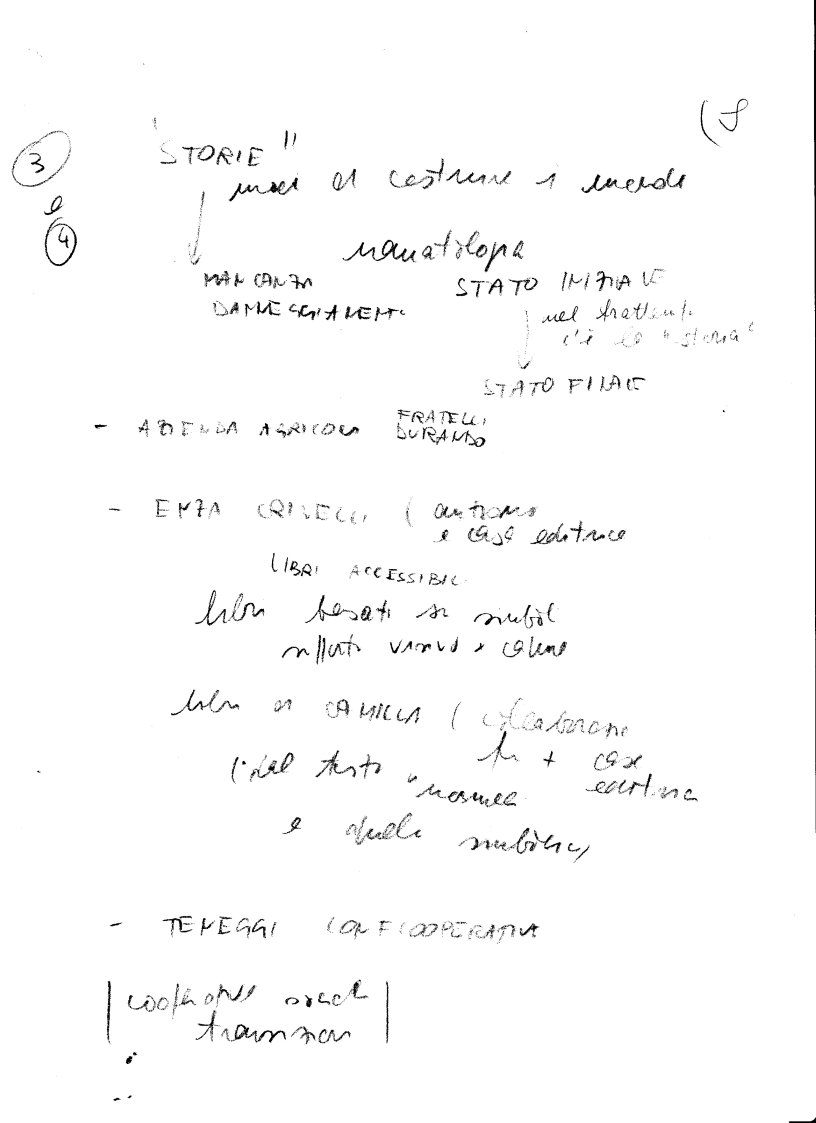 3
e
4
"STORIE"
modi di costruire i mondi
narratologia
MANCANZA
DANNEGGIAMENTO
STATO INIZIALE
nel frattempo
c'è la "storia"
STATO FINALE
- AZIENDA AGRICOLA FRATELLI
DURANDO
- ENZA CRIVELLI (autismo
e casa editrice
LIBRI ACCESSIBILI
libri basati su simboli
libri di CAMILLA (collaborazione
tra + case
editrici
del testo "normale"
e quello simbolico)
- TENEGGI CONFCOOPERATIVA
cooperative sociali